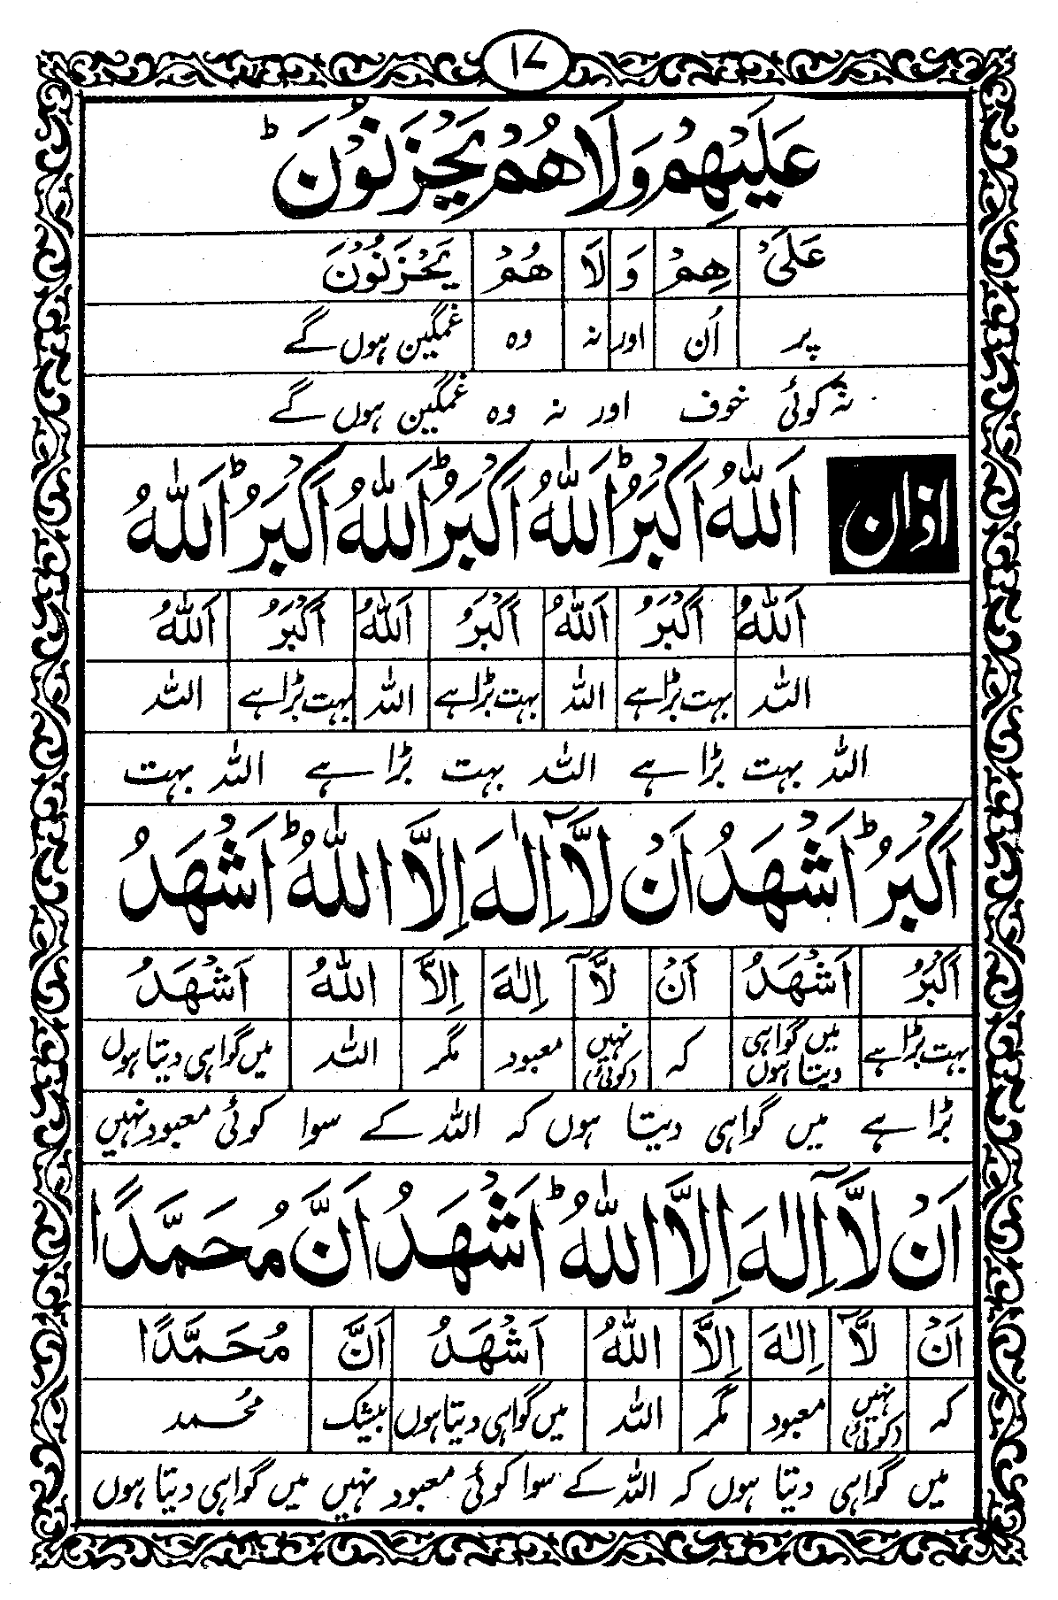 ۱۷
عَلَيْهِمْ وَلَا هُمْ يَحْزَنُوْنَ ؕ
عَلَىْ هِمْ وَ لَا هُمْ يَحْزَنُوْنَ
پر اُن اور نہ وہ غمگین ہوں گے
نہ کوئی خوف اور نہ وہ غمگین ہوں گے
اذان
اَللّٰهُ اَكْبَرُ ؕ اَللّٰهُ اَكْبَرُ ؕ اَللّٰهُ اَكْبَرُ ؕ اَللّٰهُ
اَللّٰهُ اَكْبَرُ اَللّٰهُ اَكْبَرُ اَللّٰهُ اَكْبَرُ اَللّٰهُ
اللہ بہت بڑا ہے اللہ بہت بڑا ہے اللہ بہت بڑا ہے اللہ
اللہ بہت بڑا ہے اللہ بہت بڑا ہے اللہ بہت
اَكْبَرُ ؕ اَشْهَدُ اَنْ لَّاۤ اِلٰهَ اِلَّا اللّٰهُ ؕ اَشْهَدُ
اَكْبَرُ اَشْهَدُ اَنْ لَّاۤ اِلٰهَ اِلَّا اللّٰهُ اَشْهَدُ
بہت بڑا ہے میں گواہی دیتا ہوں کہ نہیں (کوئی) معبود مگر اللہ میں گواہی دیتا ہوں
بڑا ہے میں گواہی دیتا ہوں کہ اللہ کے سوا کوئی معبود نہیں
اَنْ لَّاۤ اِلٰهَ اِلَّا اللّٰهُ ؕ اَشْهَدُ اَنَّ مُحَمَّدًا
اَنْ لَّاۤ اِلٰهَ اِلَّا اللّٰهُ اَشْهَدُ اَنَّ مُحَمَّدًا
کہ نہیں (کوئی) معبود مگر اللہ میں گواہی دیتا ہوں بیشک محمد
میں گواہی دیتا ہوں کہ اللہ کے سوا کوئی معبود نہیں میں گواہی دیتا ہوں